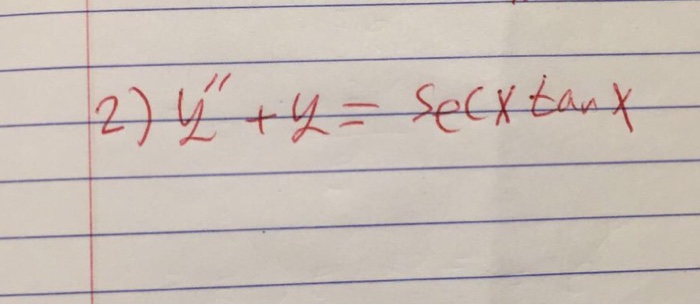 2) y'' + y = secx tanx